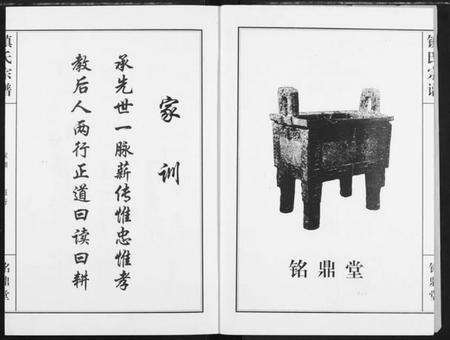 镇氏宗谱
铭鼎堂
镇氏宗谱
铭鼎堂
家训
承先世一脉薪传惟忠惟孝
教后人两行正道曰读曰耕
铭鼎堂